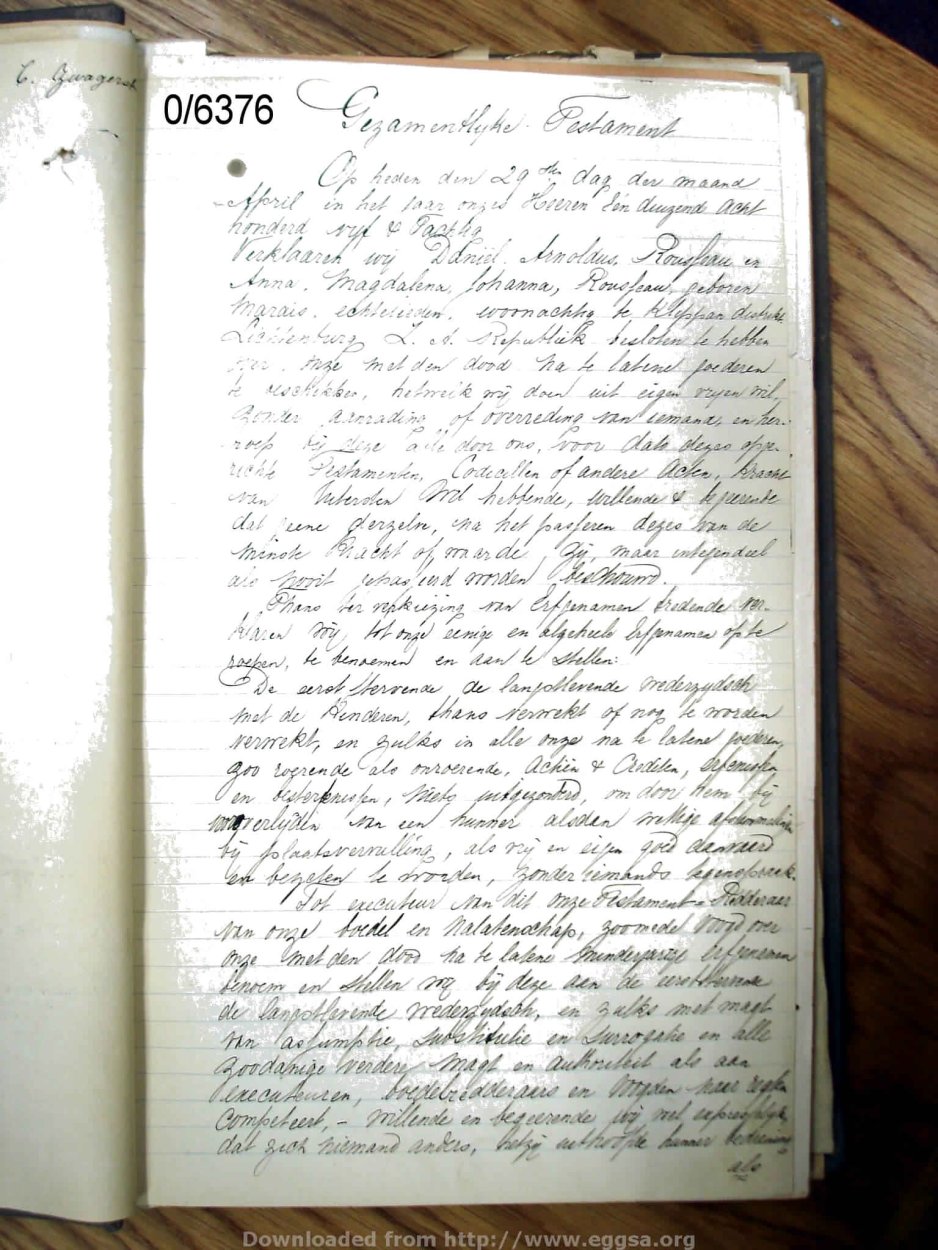 C. Zwagerst
0/6376
Gezamentlyke Testament
Op heden den 29sten dag der maand
April in het Jaar onzes Heeren Een duizend Acht
honderd vyf & Tachtig
Verklaaren wij Daniel Arnoldus Rousseau en
Anna Magdalena Johanna, Rousseau geboren
Marais, echtelieden, woonachtig te Klippan distrikt
Lichtenburg Z. A. Republiek besloten te hebben
over onze met den dood na te latene goederen
te beschikken, hetwelk wij doen uit eigen vryen wil,
zonder aanrading of overreding van iemands en her-
roep bij deze alle door ons, voor dato dezes opge-
richte Testamenten, Codicillen of andere Acten, kracht
van Uitersten Wil hebbende, willende & begeerende
dat geene derzelve, na het passeren dezes van de
minste kracht of waarde zij, maar integendeel
als nooit gepasseerd worden beschouwd.
Thans ter verkiezing van Erfgenamen tredende ver-
klaren wij, tot onze eenige en algeheele Erfgenamen op te
roepen, te benoemen en aan te stellen:
De eerst stervende de langstlevende wederzydsch
met de Kinderen, thans verwekt of nog te worden
verwekt, en zulks in alle onze na te latene goederen,
zoo roerende als onroerende, Actien & Crediten, erfenissen
en besterfenissen, niets uitgezonderd, om door hem bij
vooroverlijden van een hunner alsdan wettige afstammelingen
bij plaatsvervulling, als vrij en eigen goed aanvaard
en bezeten te worden, zonder iemands tegenspraak.
Tot executeur van dit onze Testament Redderaar
van onze boedel en nalatenschap, zoomede Voogd over
onze met den dood na te latene minderjarige erfgenamen
benoem en stellen wij bij deze aan de eerststervende
de langstlevende wederzydsch, en zulks met magt
van assumptie, substitutie en surrogatie en alle
zoodanige verdere magt en authoriteit als aan
executeuren, boedelredderaars en Voogden naar regten
Competeert, - willende en begeerende wij wel expresselyk
dat zich niemand anders, hetzij uithoofde hunner bediening
als
Downloaded from http://www.eggsa.org